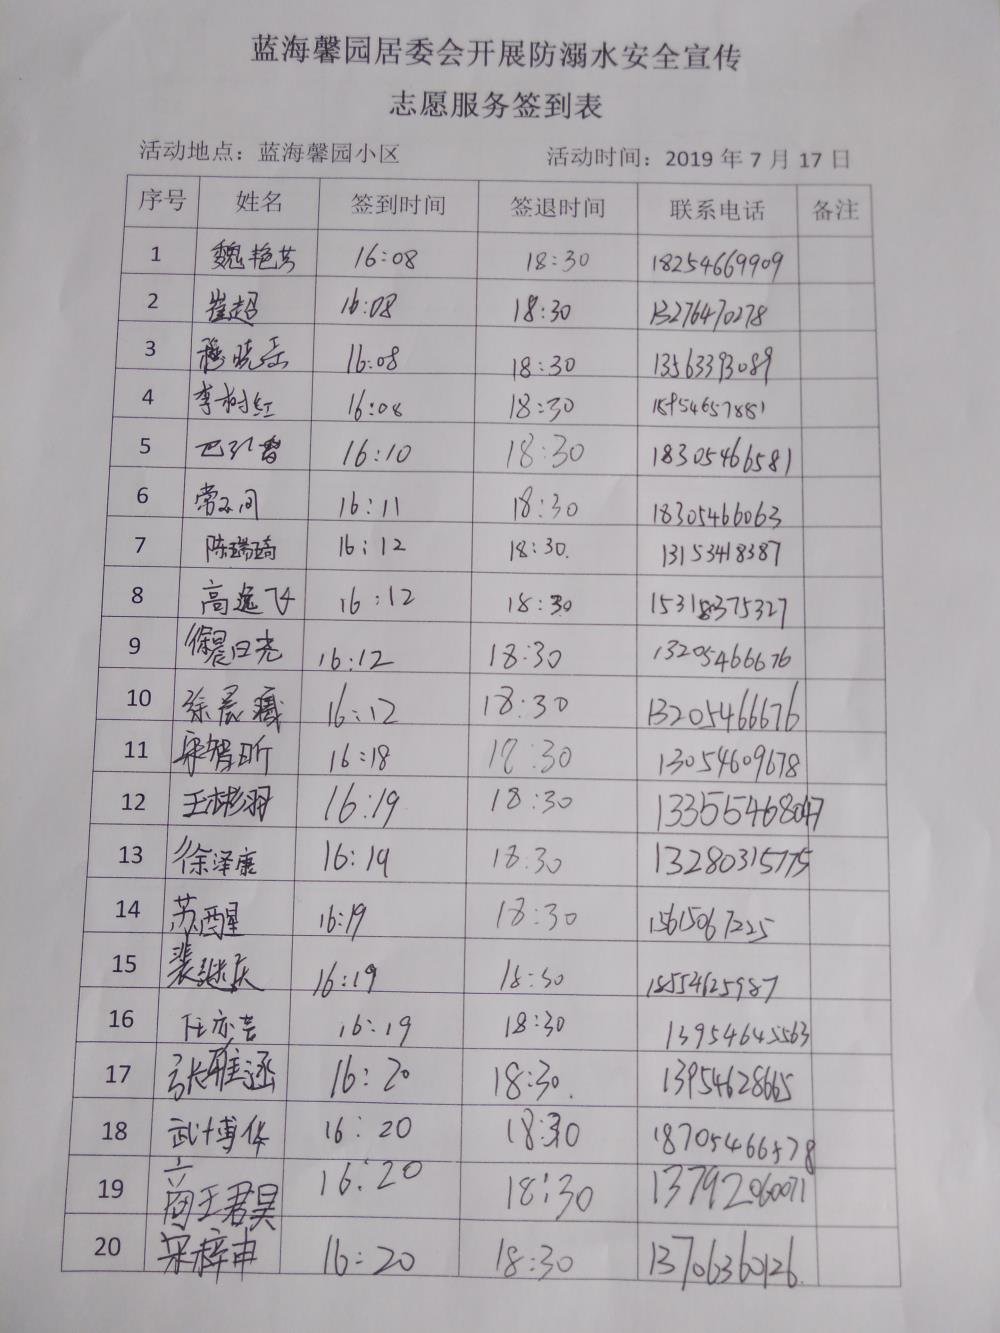 蓝海馨园居委会开展防溺水安全宣传
志愿服务签到表
活动地点：蓝海馨园小区 活动时间：2019 年 7 月 17 日
序号 姓名 签到时间 签退时间 联系电话 备注
1 魏艳芳 16:08 18:30 18254669909
2 崔超 16:08 18:30 13276470278
3 穆晓岳 16:08 18:30 13563393089
4 李树红 16:08 18:30 15954657881
5 16:10 18:30 18305466581
6 16:11 18:30 18305466063
7 陈瑞琦 16:12 18:30. 13153418387
8 高逸飞 16:12 18:30 15318375327
9 徐晨曦 16:12 18:30 13205466676
10 徐晨曦 16:12 18:30 13205466676
11 宋智昕 16:18 18:30 13054609678
12 王彬羽 16:19 18:30 13355468047
13 徐泽康 16:19 18:30 13280315775
14 苏醒 16:19 18:30 15615067225
15 裴继庆 16:19 18:30 18554625987
16 任亦芸 16:19 18:30 13954645563
17 张雅涵 16:20 18:30. 13954628665
18 武博华 16:20 18:30 18705466578
19 商王君昊 16:20 18:30 13792060071
20 宋梓申 16:20 18:30 13706360126.